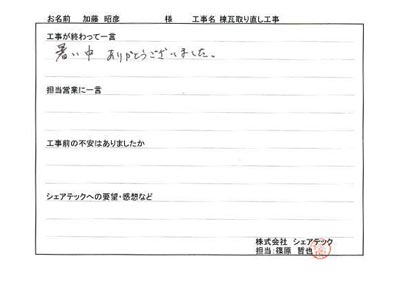 お名前 加藤 昭彦 様 工事名 棟瓦取り直し工事
工事が終わって一言
暑い中 ありがとうございました。
担当営業に一言
工事前の不安はありましたか
シェアテックへの要望・感想など
株式会社 シェアテック
担当:篠原 哲也